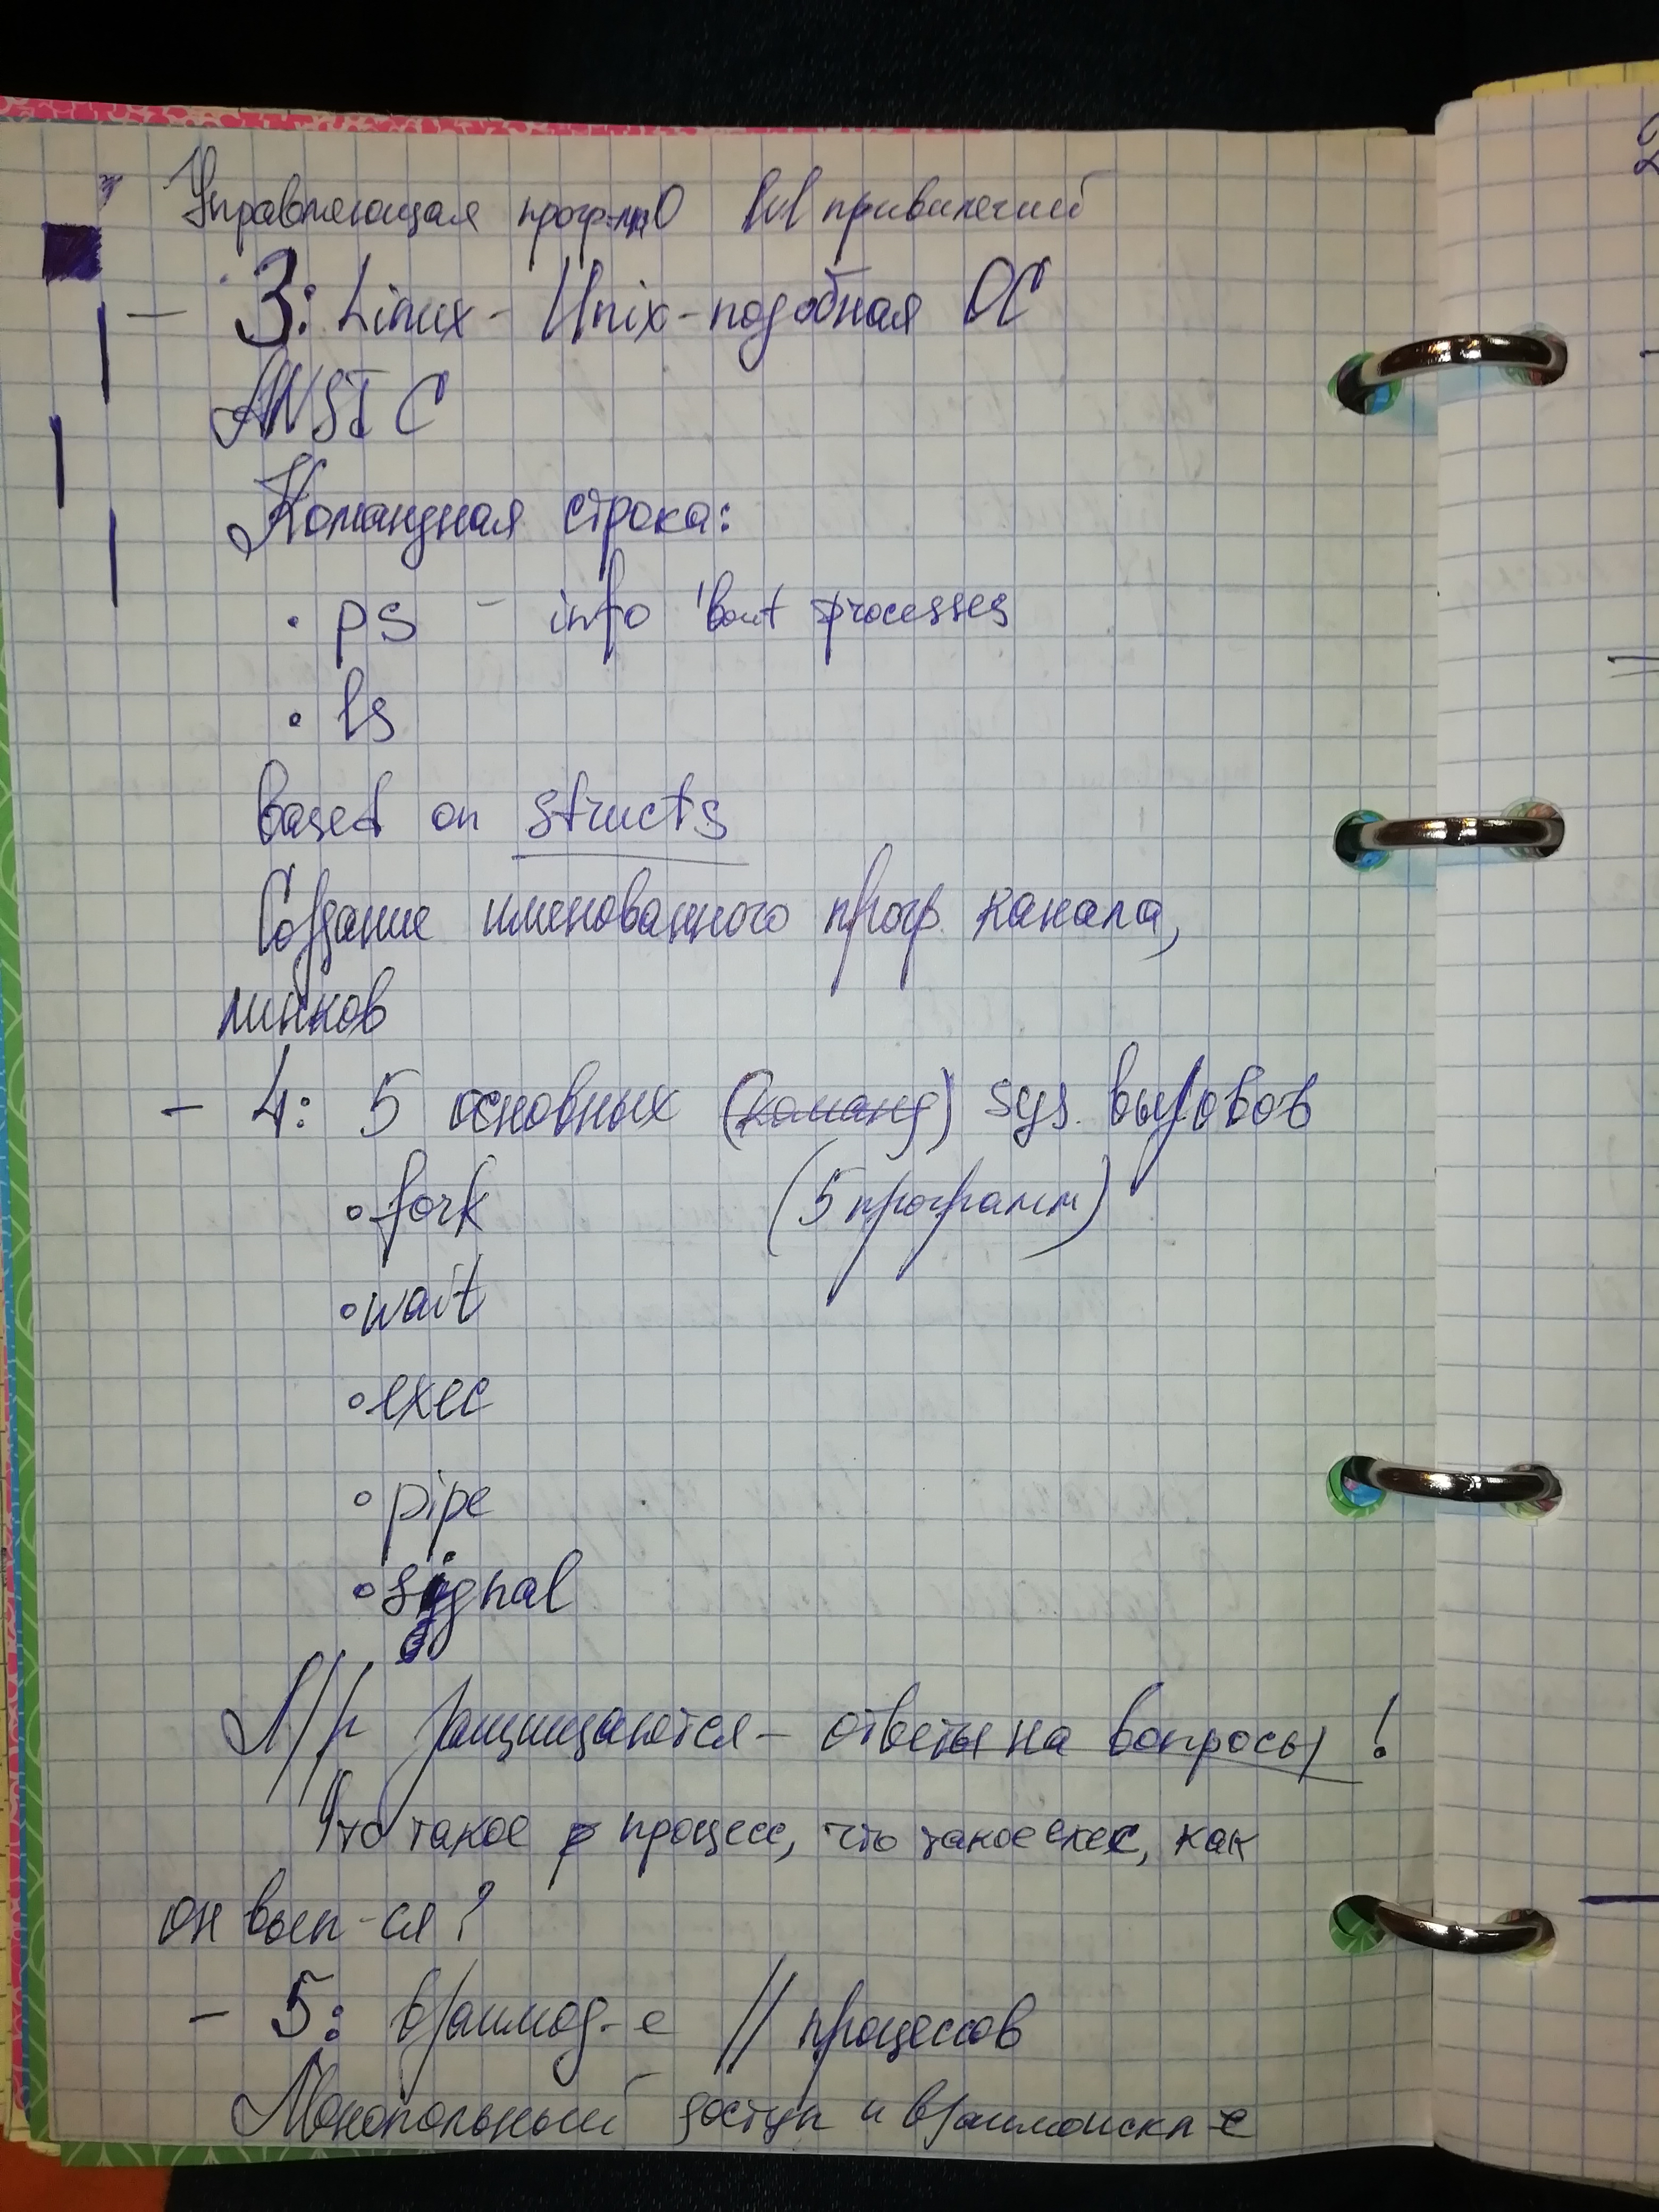 Управляющая прогр-ма 0 lvl привилегий
- 3: Linux - Unix-подобная ОС
ANSI C
Командная строка:
• ps - info 'bout processes
• ls
based on structs
Создание именованного прогр. канала,
линков
- 4: 5 основных (команд) sys. вызовов
• fork (5 программ)
• wait
• exec
• pipe
• signal
Л/р защищаются - ответы на вопросы!
Что такое процесс, что такое exec, как
он вып-ся?
- 5: взаимод-е // процессов
Монопольный доступ и взаимоискл-е
2